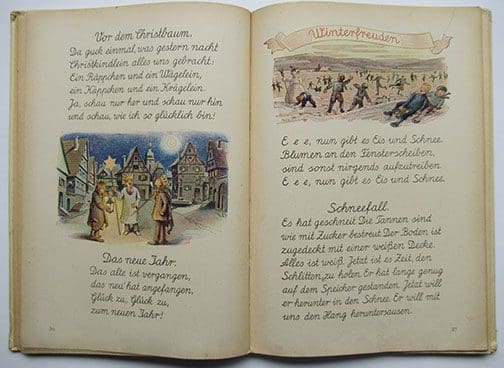 Vor dem Christbaum.
Da guck einmal, was gestern nacht
Christkindlein alles uns gebracht:
Ein Räppchen und ein Wägelein,
ein Käppchen und ein Krägelein.
Ja, schau nur her und schau nur hin
und schau, wie ich so glücklich bin!
Das neue Jahr.
Das alte ist vergangen,
das neu' hat angefangen,
Glück zu, Glück zu,
zum neuen Jahr!
Winterfreuden
E e e, nun gibt es Eis und Schnee.
Blumen an den Fensterscheiben,
sind sonst nirgends aufzutreiben.
E e e, nun gibt es Eis und Schnee.
Schneefall.
Es hat geschneit. Die Tannen sind
wie mit Zucker bestreut. Der Boden ist
zugedeckt mit einer weißen Decke.
Alles ist weiß. Jetzt ist es Zeit, den
Schlitten zu holen. Er hat lange genug
auf dem Speicher gestanden. Jetzt will
er herunter in den Schnee. Er will mit
uns den Hang heruntersausen.
37